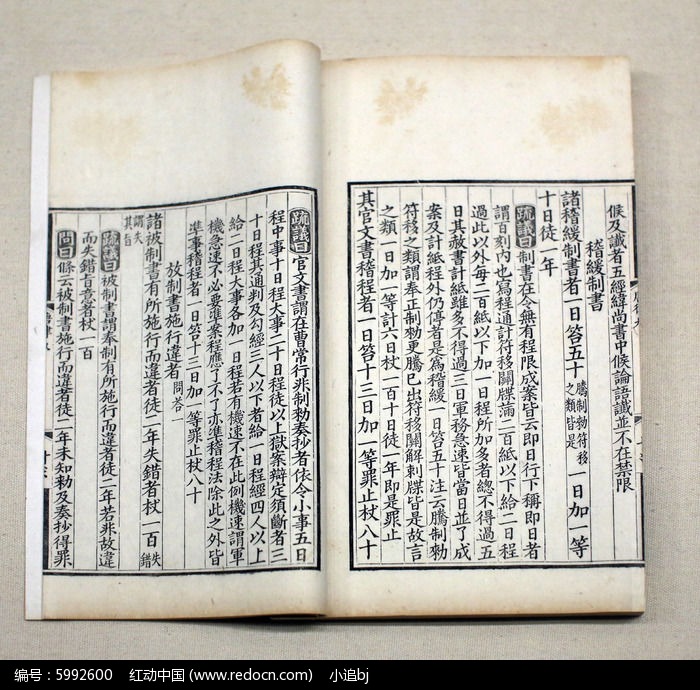 候及讖者五經緯尚書中候論語讖並不在禁限
稽緩制書
諸稽緩制書者一日笞五十 謄制勑符移之類皆是 一日加一等
十日徒一年
疏議曰制書在令無有程限成案皆云即日行下稱即日者
謂百刻內也寫程通計符移關牒滿二百紙以下給二日程
過此以外每二百紙以下加一日程所加多者總不得過五
日其赦書計紙雖多不得過三日軍務急速皆當日並了成
案及計紙程外仍停者是爲稽緩一日笞五十注云謄制勑
符移之類謂奉正制勑更謄已出符移關解刺牒皆是故言
之類一日加一等計六日杖一百十日徒一年即是罪止
其官文書稽程者一日笞十三日加一等罪止杖八十
疏議曰官文書謂在曹常行非制勑奏抄者依令小事五日
程中事十日程大事二十日程徒以上獄案辯定須斷者三
十日程其通判及勾經三人以下者給一日程經四人以上
給二日程大事各加一日程若有機速不在此例機速謂軍
機急速不必要準案程應了不了亦準稽程法除此之外皆
準事稽程者一日笞十三日加一等罪止杖八十
被制書施行違者 問荅一
諸被制書有所施行而違者徒二年失錯者杖一百 失錯
謂失其旨
疏議曰被制書謂奉制有所施行而違者徒二年若非故違
而失錯旨意者杖一百
問曰條云被制書施行而違者徒二年未知勑及奏抄得罪
编号：5992600 红动中国 (www.redocn.com) 小追bj